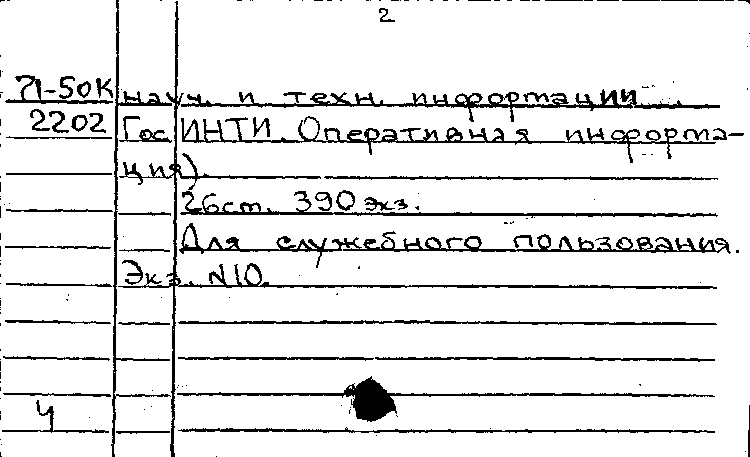 2
71-50К науч. и техн. информации
2202 ГосИНТИ. Оперативная информа-
ция).
26ст. 390 экз.
Для служебного пользования.
Экз. N10.
Ч